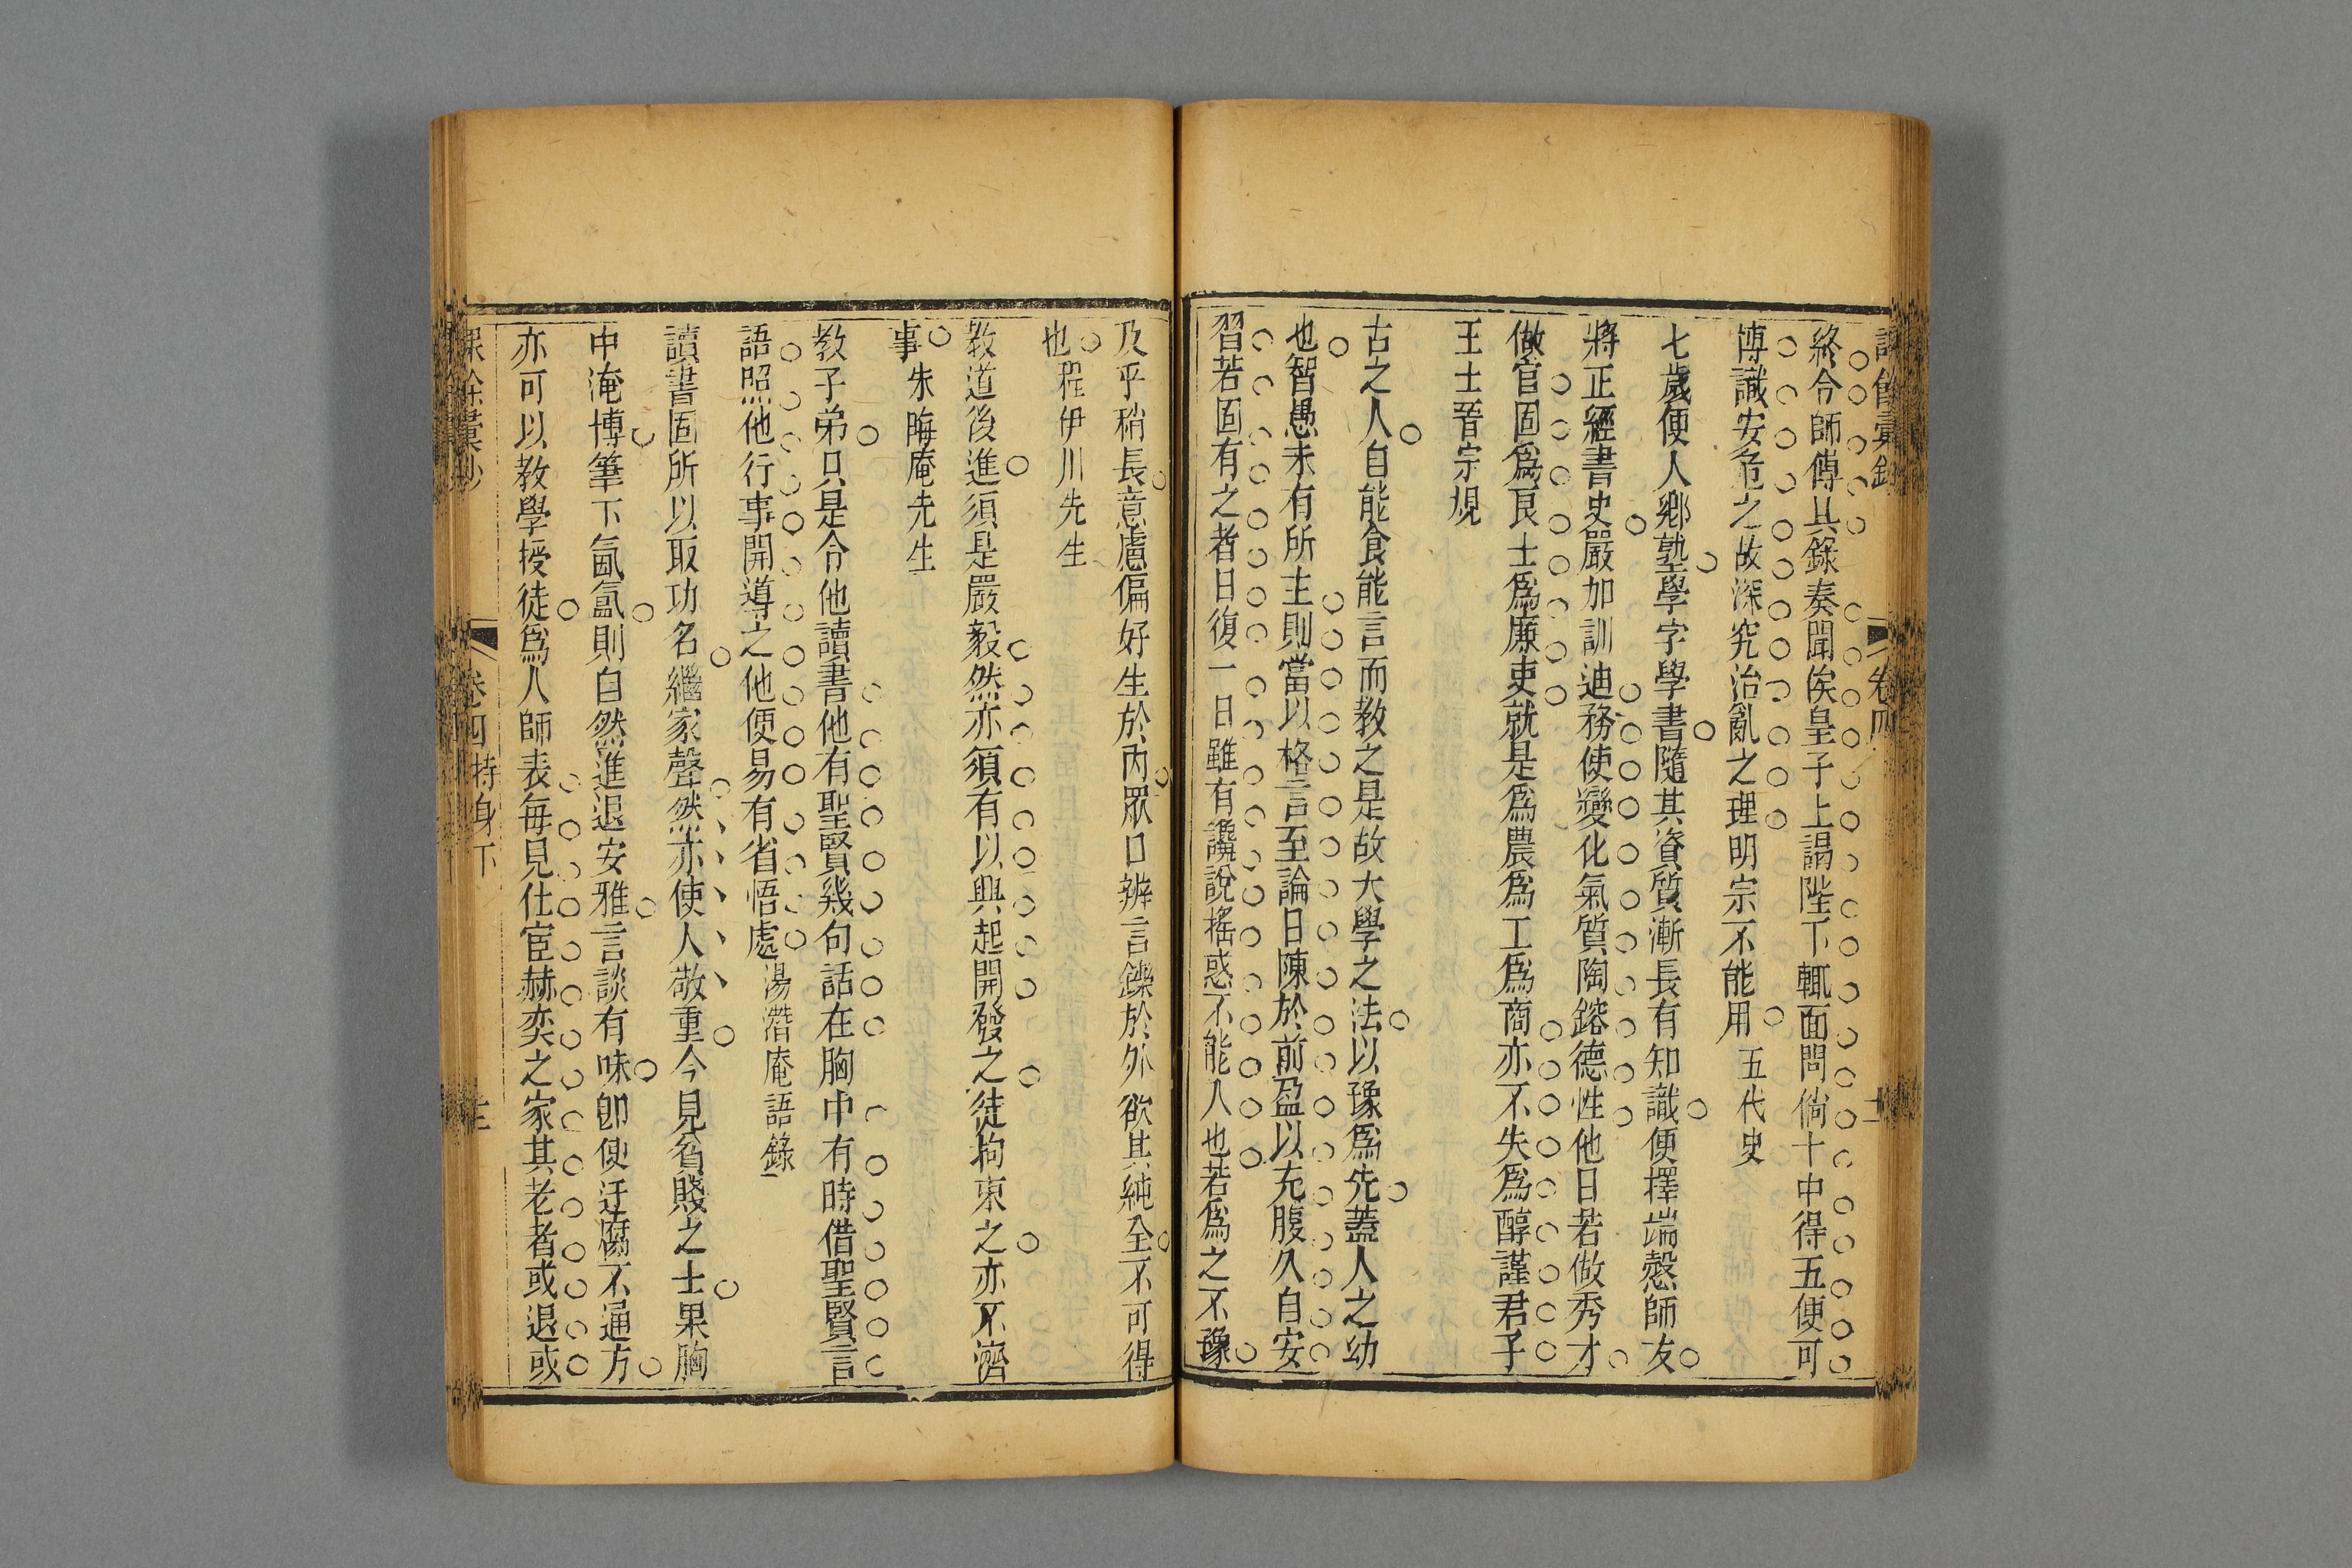 終令師傅具錄奏聞俟皇子上謁陛下輒面問倘十中得五便可
博識安危之故深究治亂之理明宗不能用 五代史
七歲便人鄉塾學字學書隨其資質漸長有知識便擇端慤師友
將正經書史嚴加訓迪務使變化氣質陶鎔德性他日若做秀才
做官固爲良士爲廉吏就是爲農爲工爲商亦不失爲醇謹君子
王士晉宗規
古之人自能食能言而教之是故大學之法以豫爲先蓋人之幼
也智愚未有所主則當以格言至論日陳於前盈以充腹久自安
習若固有之者日復一日雖有讒說搖惑不能入也若爲之不豫
及乎稍長意慮偏好生於內眾口辨言鑠於外欲其純全不可得
也程伊川先生
教道後進須是嚴毅然亦須有以興起開發之徒拘束之亦不濟
事朱晦庵先生
教子弟只是令他讀書他有聖賢幾句話在胸中有時借聖賢言
語照他行事開導之他便易有省悟處湯潛庵語錄
讀書固所以取功名繼家聲然亦使人敬重今見貧賤之士果胸
中淹博筆下氤氳則自然進退安雅言談有味卽使迂腐不通方
亦可以教學授徒爲人師表每見仕宦赫奕之家其老者或退或
卷四持身下